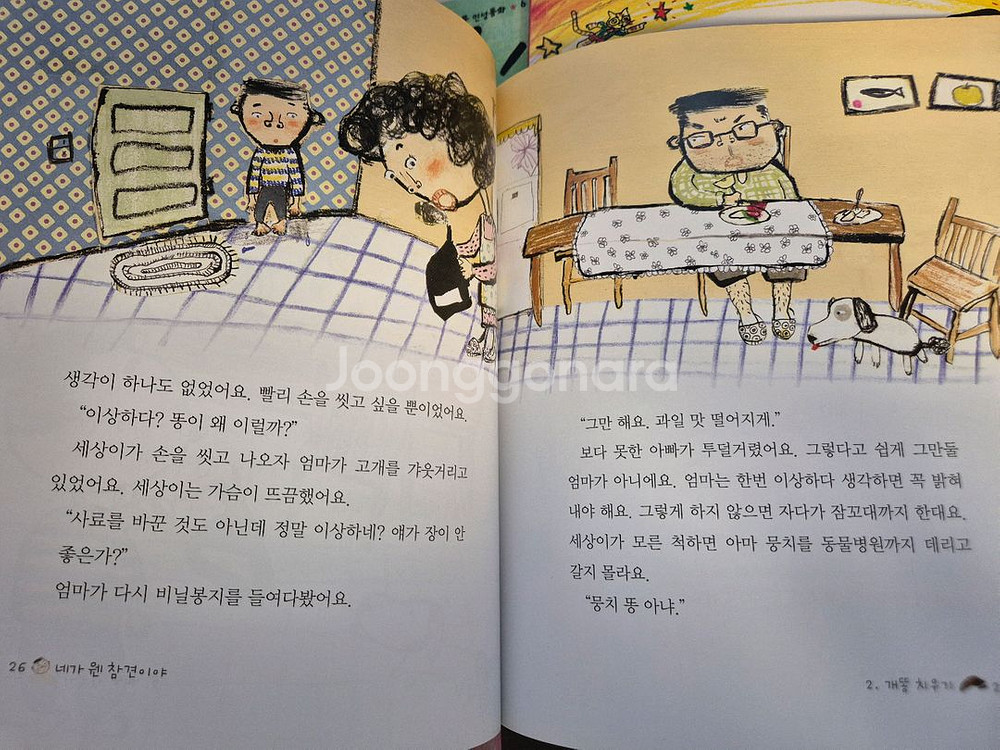 전성동화
6
Joonggonara
생각이 하나도 없었어요. 빨리 손을 씻고 싶을 뿐이었어요.
“이상하다? 똥이 왜 이럴까?”
세상이가 손을 씻고 나오자 엄마가 고개를 갸웃거리고
있었어요. 세상이는 가슴이 뜨끔했어요.
“사료를 바꾼 것도 아닌데 정말 이상하네? 얘가 장이 안
좋은가?”
엄마가 다시 비닐봉지를 들여다봤어요.
26 네가 웬 참견이야
“그만 해요. 과일 맛 떨어지게.”
보다 못한 아빠가 투덜거렸어요. 그렇다고 쉽게 그만둘
엄마가 아니에요. 엄마는 한번 이상하다 생각하면 꼭 밝혀
내야 해요. 그렇게 하지 않으면 자다가 잠꼬대까지 한대요.
세상이가 모른 척하면 아마 뭉치를 동물병원까지 데리고
갈지 몰라요.
“뭉치 똥 아냐.”
2. 개똥 치우기